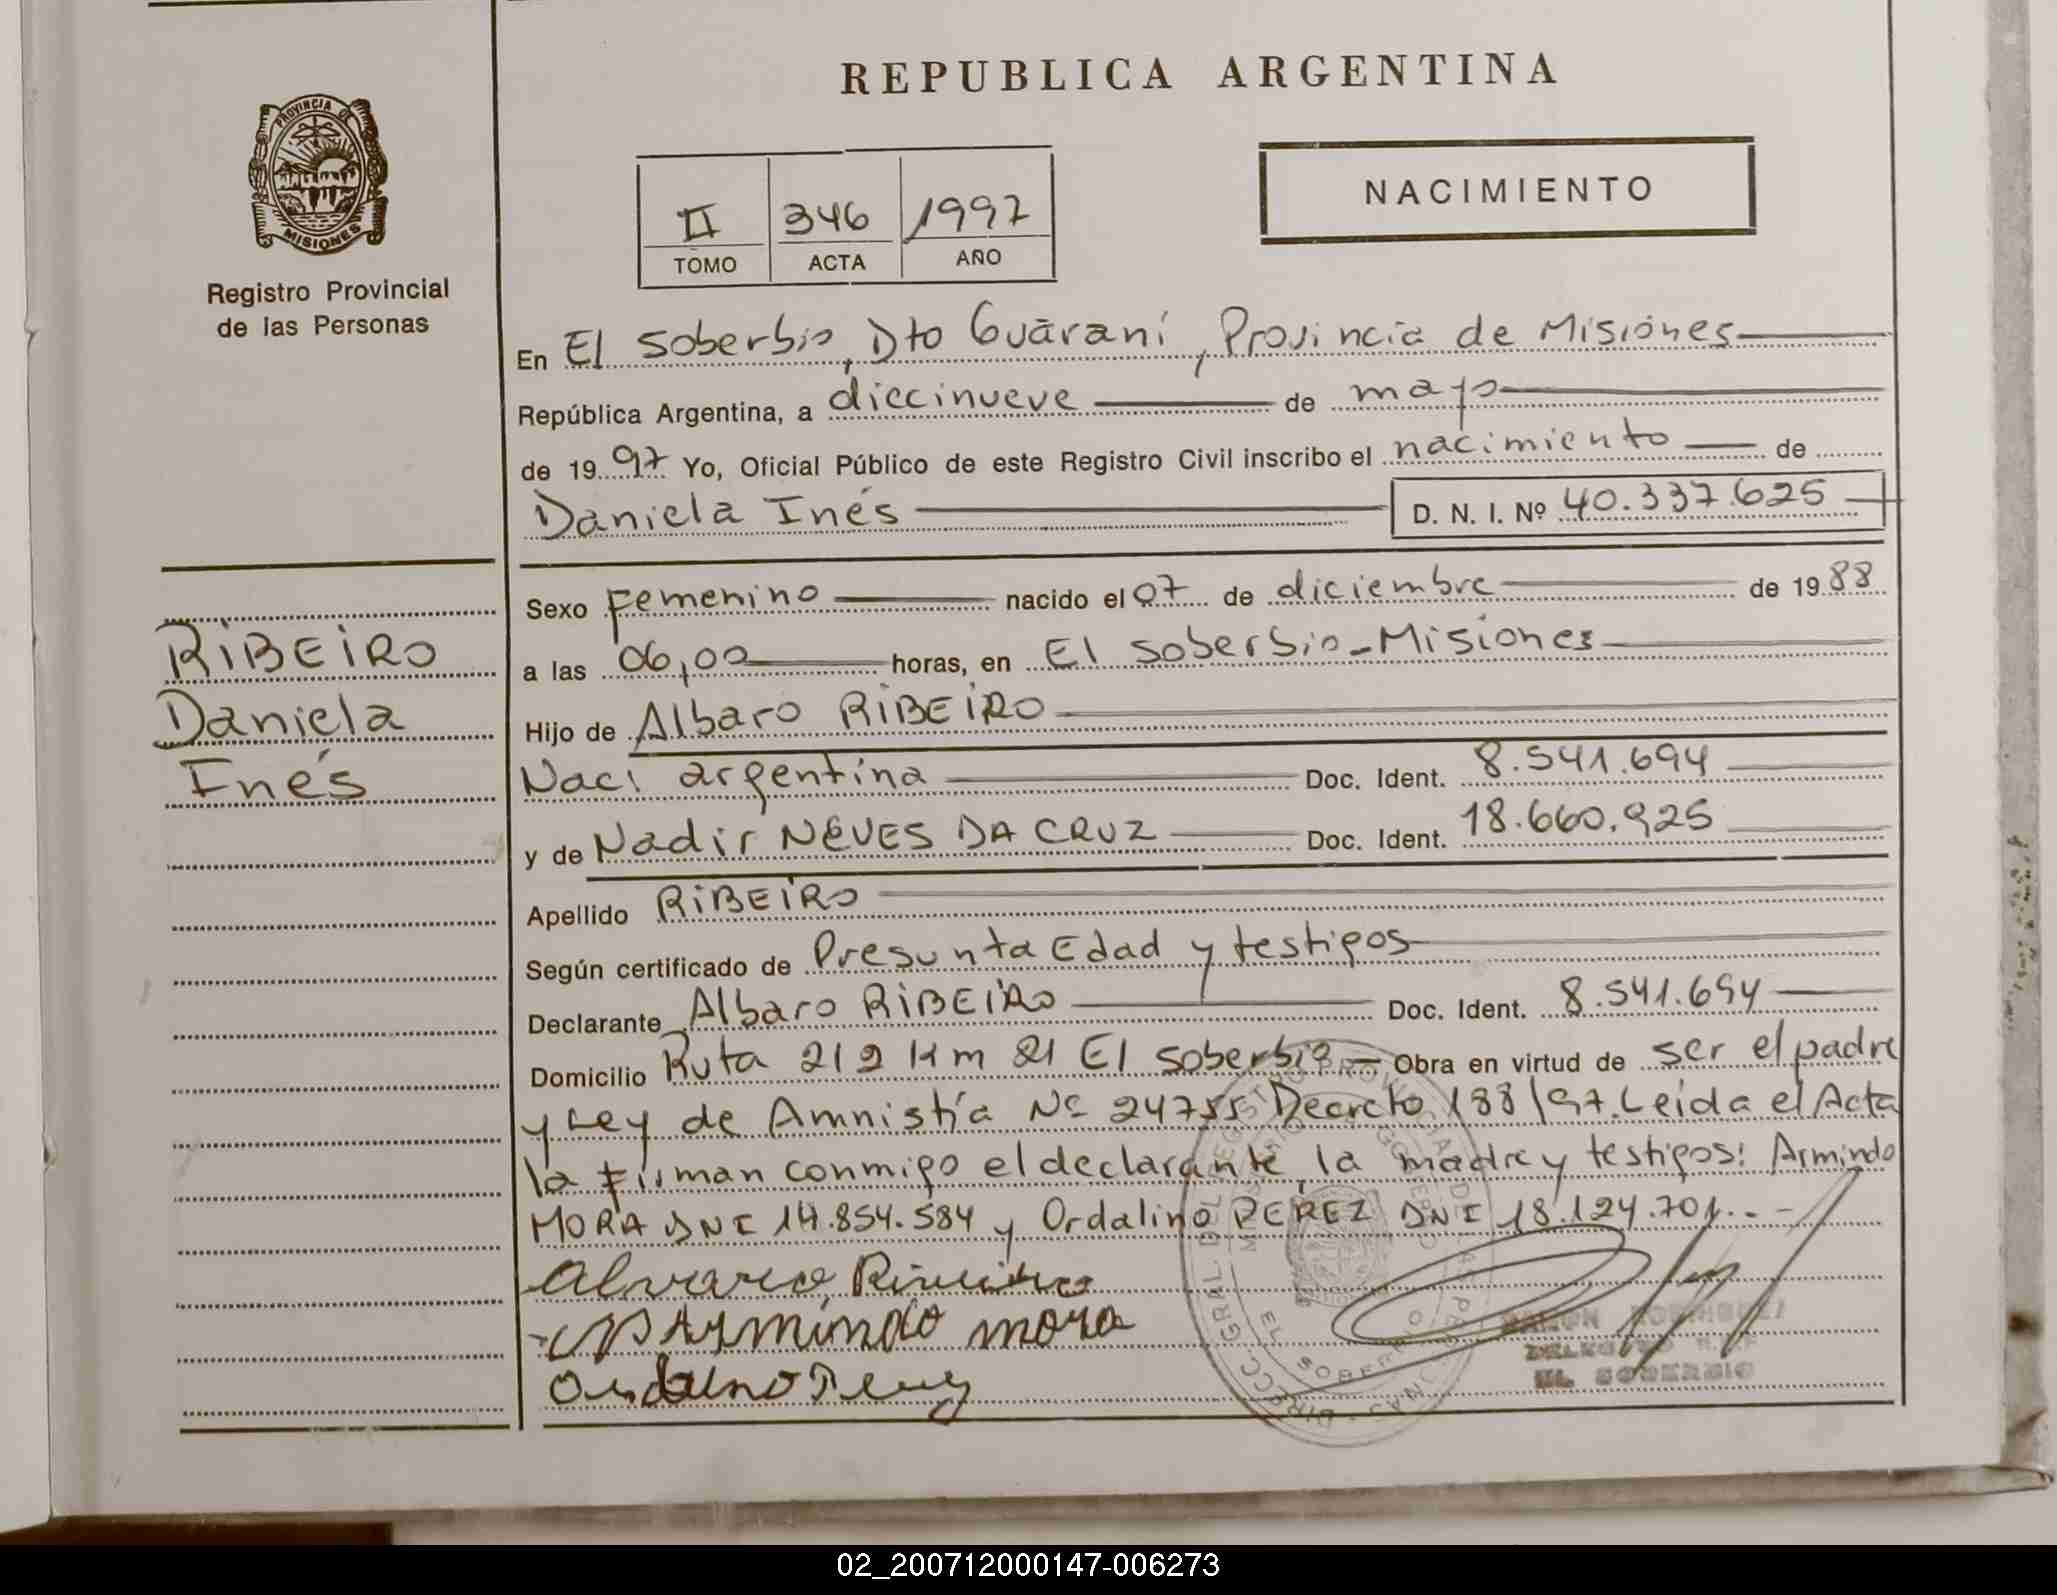 REPUBLICA ARGENTINA
PROVINCIA DE
MISIONES
Registro Provincial
de las Personas
II 346 1997
TOMO ACTA AÑO
NACIMIENTO
En El Soberbio, Dto Guaraní, Provincia de Misiones
República Argentina, a diecinueve de mayo
de 19 97 Yo, Oficial Público de este Registro Civil inscribo el nacimiento de
Daniela Inés D. N. I. Nº 40.337.625
RIBEIRO
Daniela
Inés
Sexo Femenino nacido el 07 de diciembre de 19 88
a las 06,00 horas, en El Soberbio-Misiones
Hijo de Albaro RIBEIRO
Naci argentina Doc. Ident. 8.541.694
y de Nadir NEVES DA CRUZ Doc. Ident. 18.660.925
Apellido RIBEIRO
Según certificado de Presunta Edad y testigos
Declarante Albaro RIBEIRO Doc. Ident. 8.541.694
Domicilio Ruta 212 Km 21 El Soberbio Obra en virtud de ser el padre
y Ley de Amnistía Nº 24755 Decreto 188/97. Leída el Acta
la firman conmigo el declarante, la madre y testigos: Armindo
MORA DNI 14.854.584 y Ordalino PEREZ DNI 18.124.701.--
Armindo mora
DELEGADO
EL SOBERBIO
02_200712000147-006273